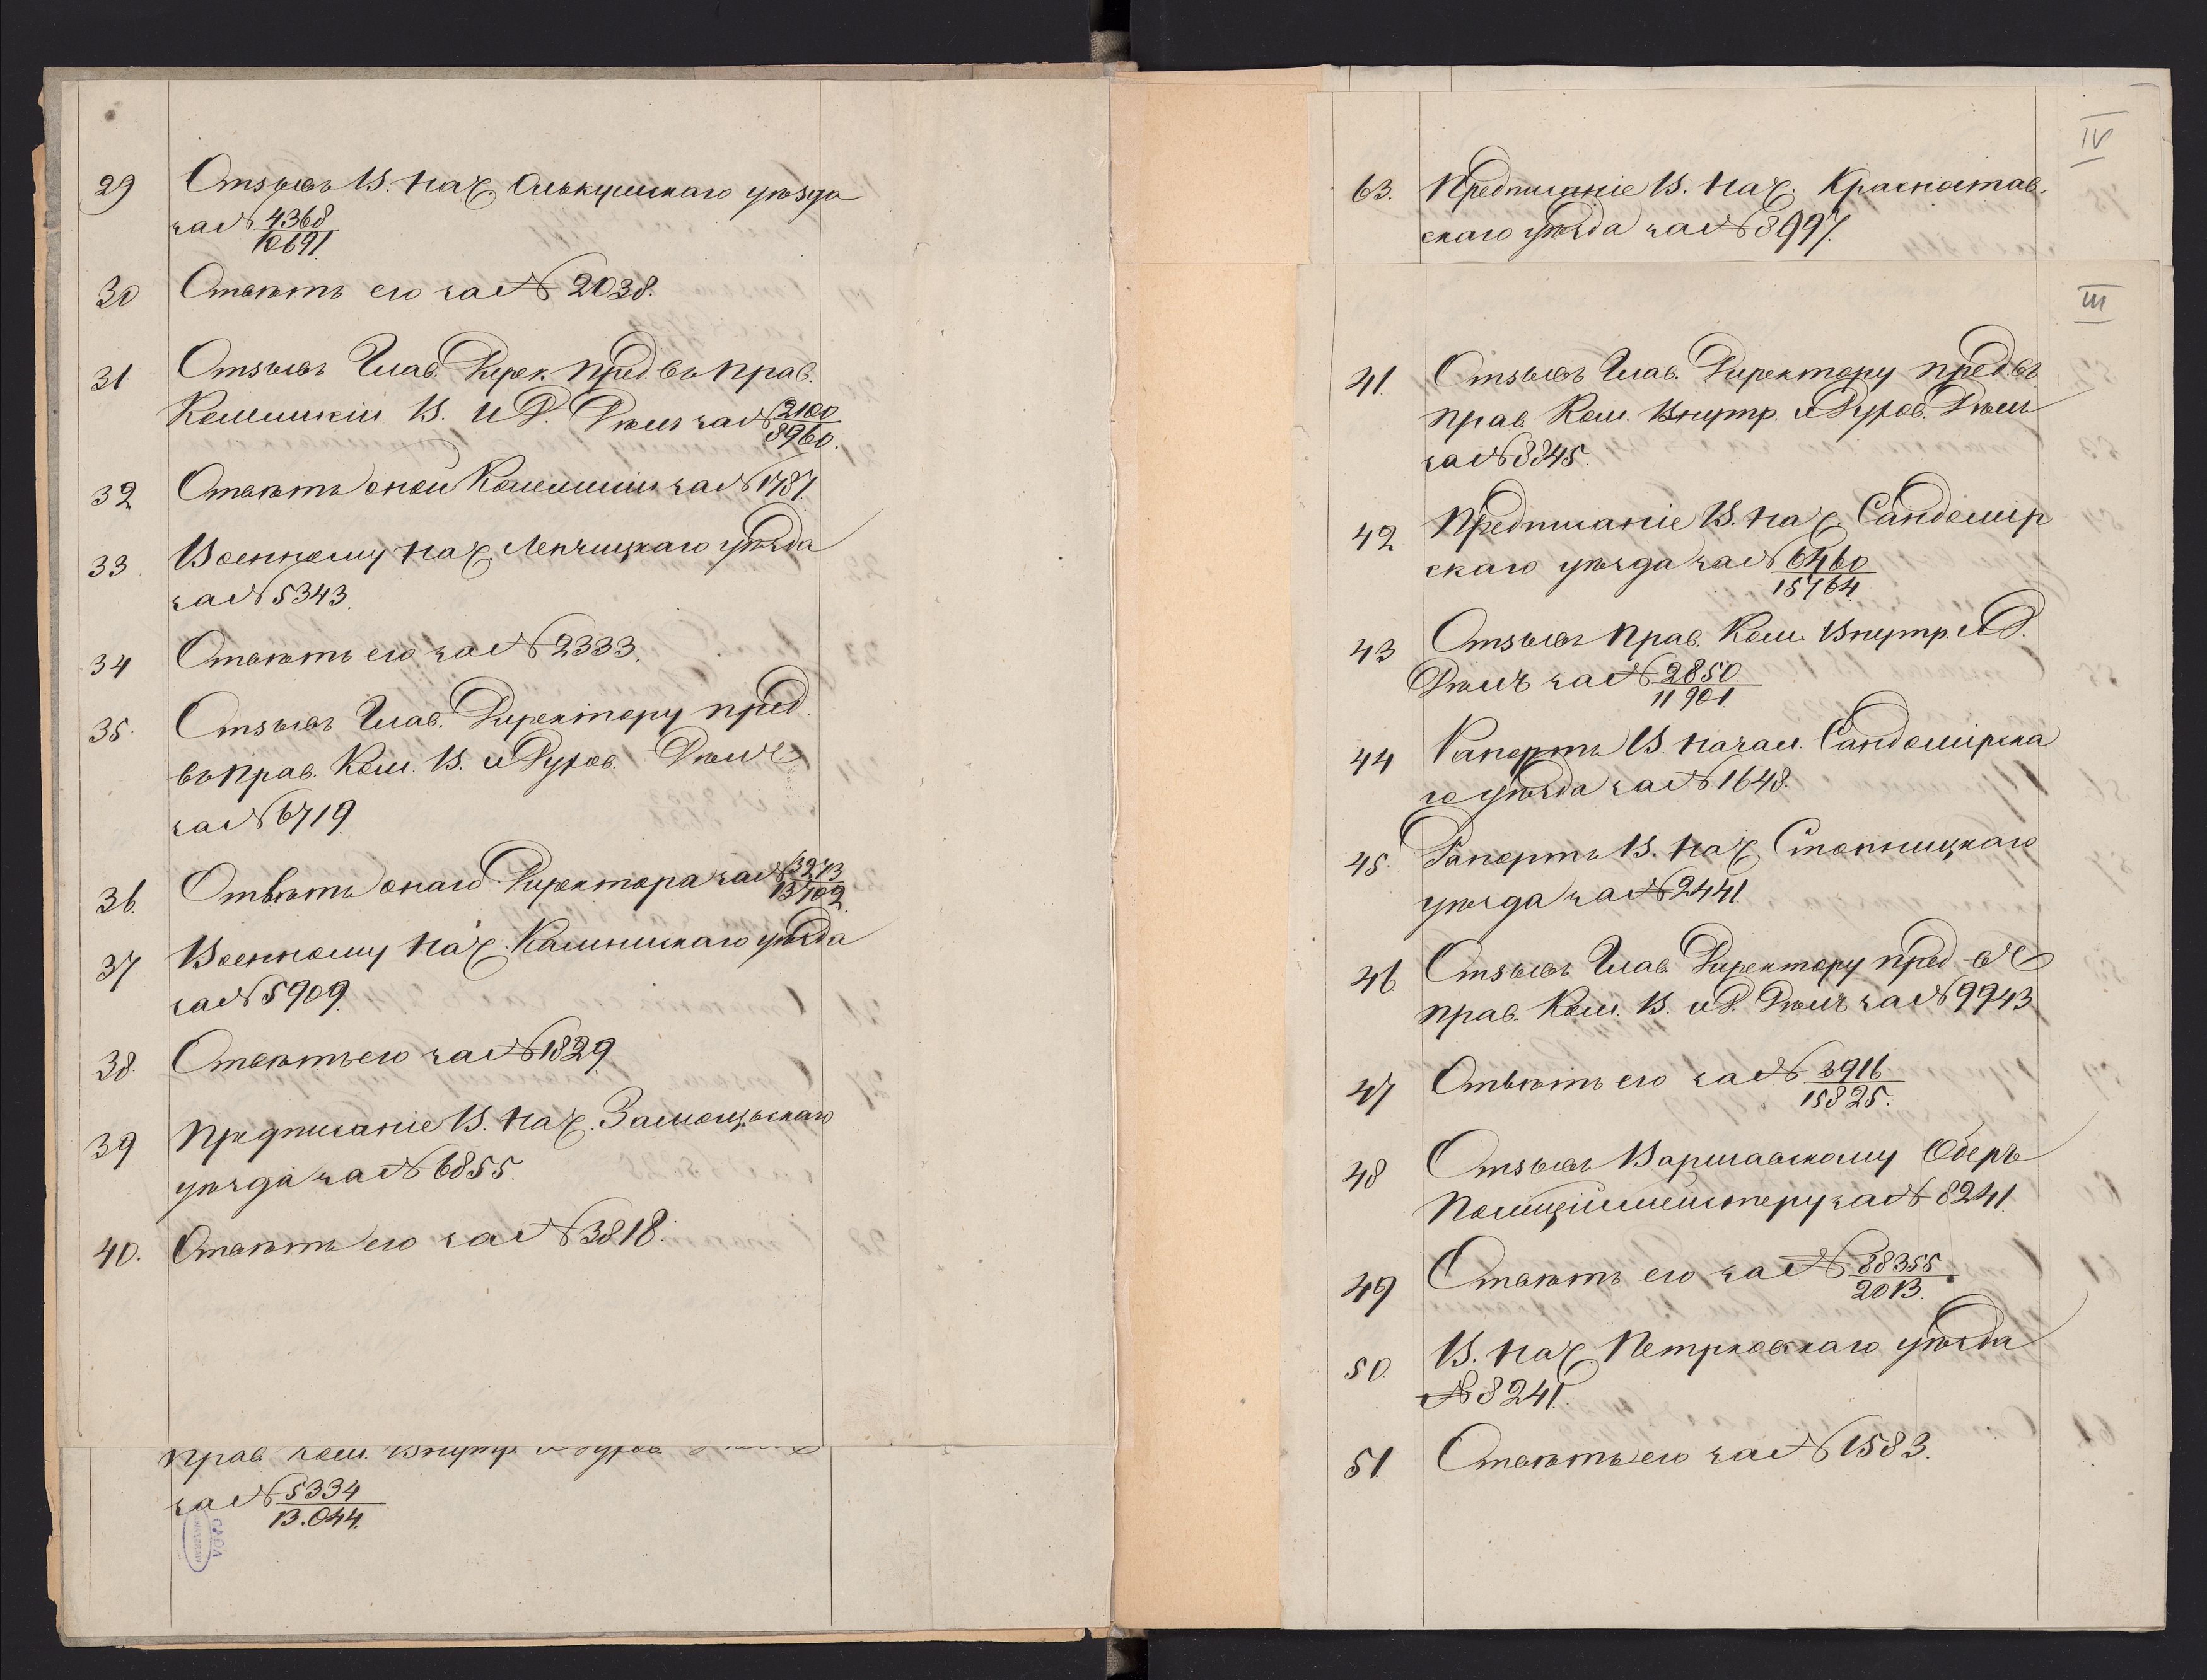 29 Отзывъ В. Нач. Олькушскаго уѣзда
за № 4368/10691.
30 Отвѣтъ его за № 2038.
31 Отзывъ Глав. Дирек. Пред. въ Прав.
Коммискіи В. и Д. Дѣлъ за № 2100/8960.
32 Отвѣтъ оной Коммискіи за № 1787.
33 Военному Нач. Ленчицкаго уѣзда
за № 5343.
34 Отвѣтъ его за № 2333.
35. Отзывъ Глав. Директору пред.
въ Прав. Ком. В. и Духов. Дѣлъ
за № 6719.
36. Отвѣтъ онаго Директора за № 3273/13702.
37 Военному Нач. Калишскаго уѣзда
за № 5909.
38. Отвѣтъ его за № 1829.
39 Предписаніе В. Нач. Замосцьскаго
уѣзда за № 6855.
40. Отвѣтъ его за № 3818.
Прав. Ком. Внутр. и Духов.
за № 5334/13.044.
IV
63. Предписаніе В. Нач. Красностав-
скаго уѣзда за № 8997.
III
41. Отзывъ Глав. Директору пред. въ
Прав. Ком. Внутр. и Духов. Дѣлъ
за № 8845.
42 Предписаніе В. Нач. Сандомір
скаго уѣзда за № 6460/15764.
43 Отзывъ Прав. Ком. Внутр. и Д.
Дѣлъ за № 2850/11901.
44 Рапортъ В. Начал. Сандомірска
го уѣзда за № 1648.
45. Рапортъ В. Нач. Стопницкаго
уѣзда за № 2441.
46. Отзывъ Глав. Директору пред. въ
Прав. Ком. В. и Д. Дѣлъ за № 9943.
47 Отвѣтъ его за № 3916/15825.
48 Отзывъ Варшавскому Оберъ
Полиціймейстеру за № 8241.
49 Отвѣтъ его за № 88355/2013.
50. В. Нач. Петрковскаго уѣзда
№ 8241.
51. Отвѣтъ его за № 1583.